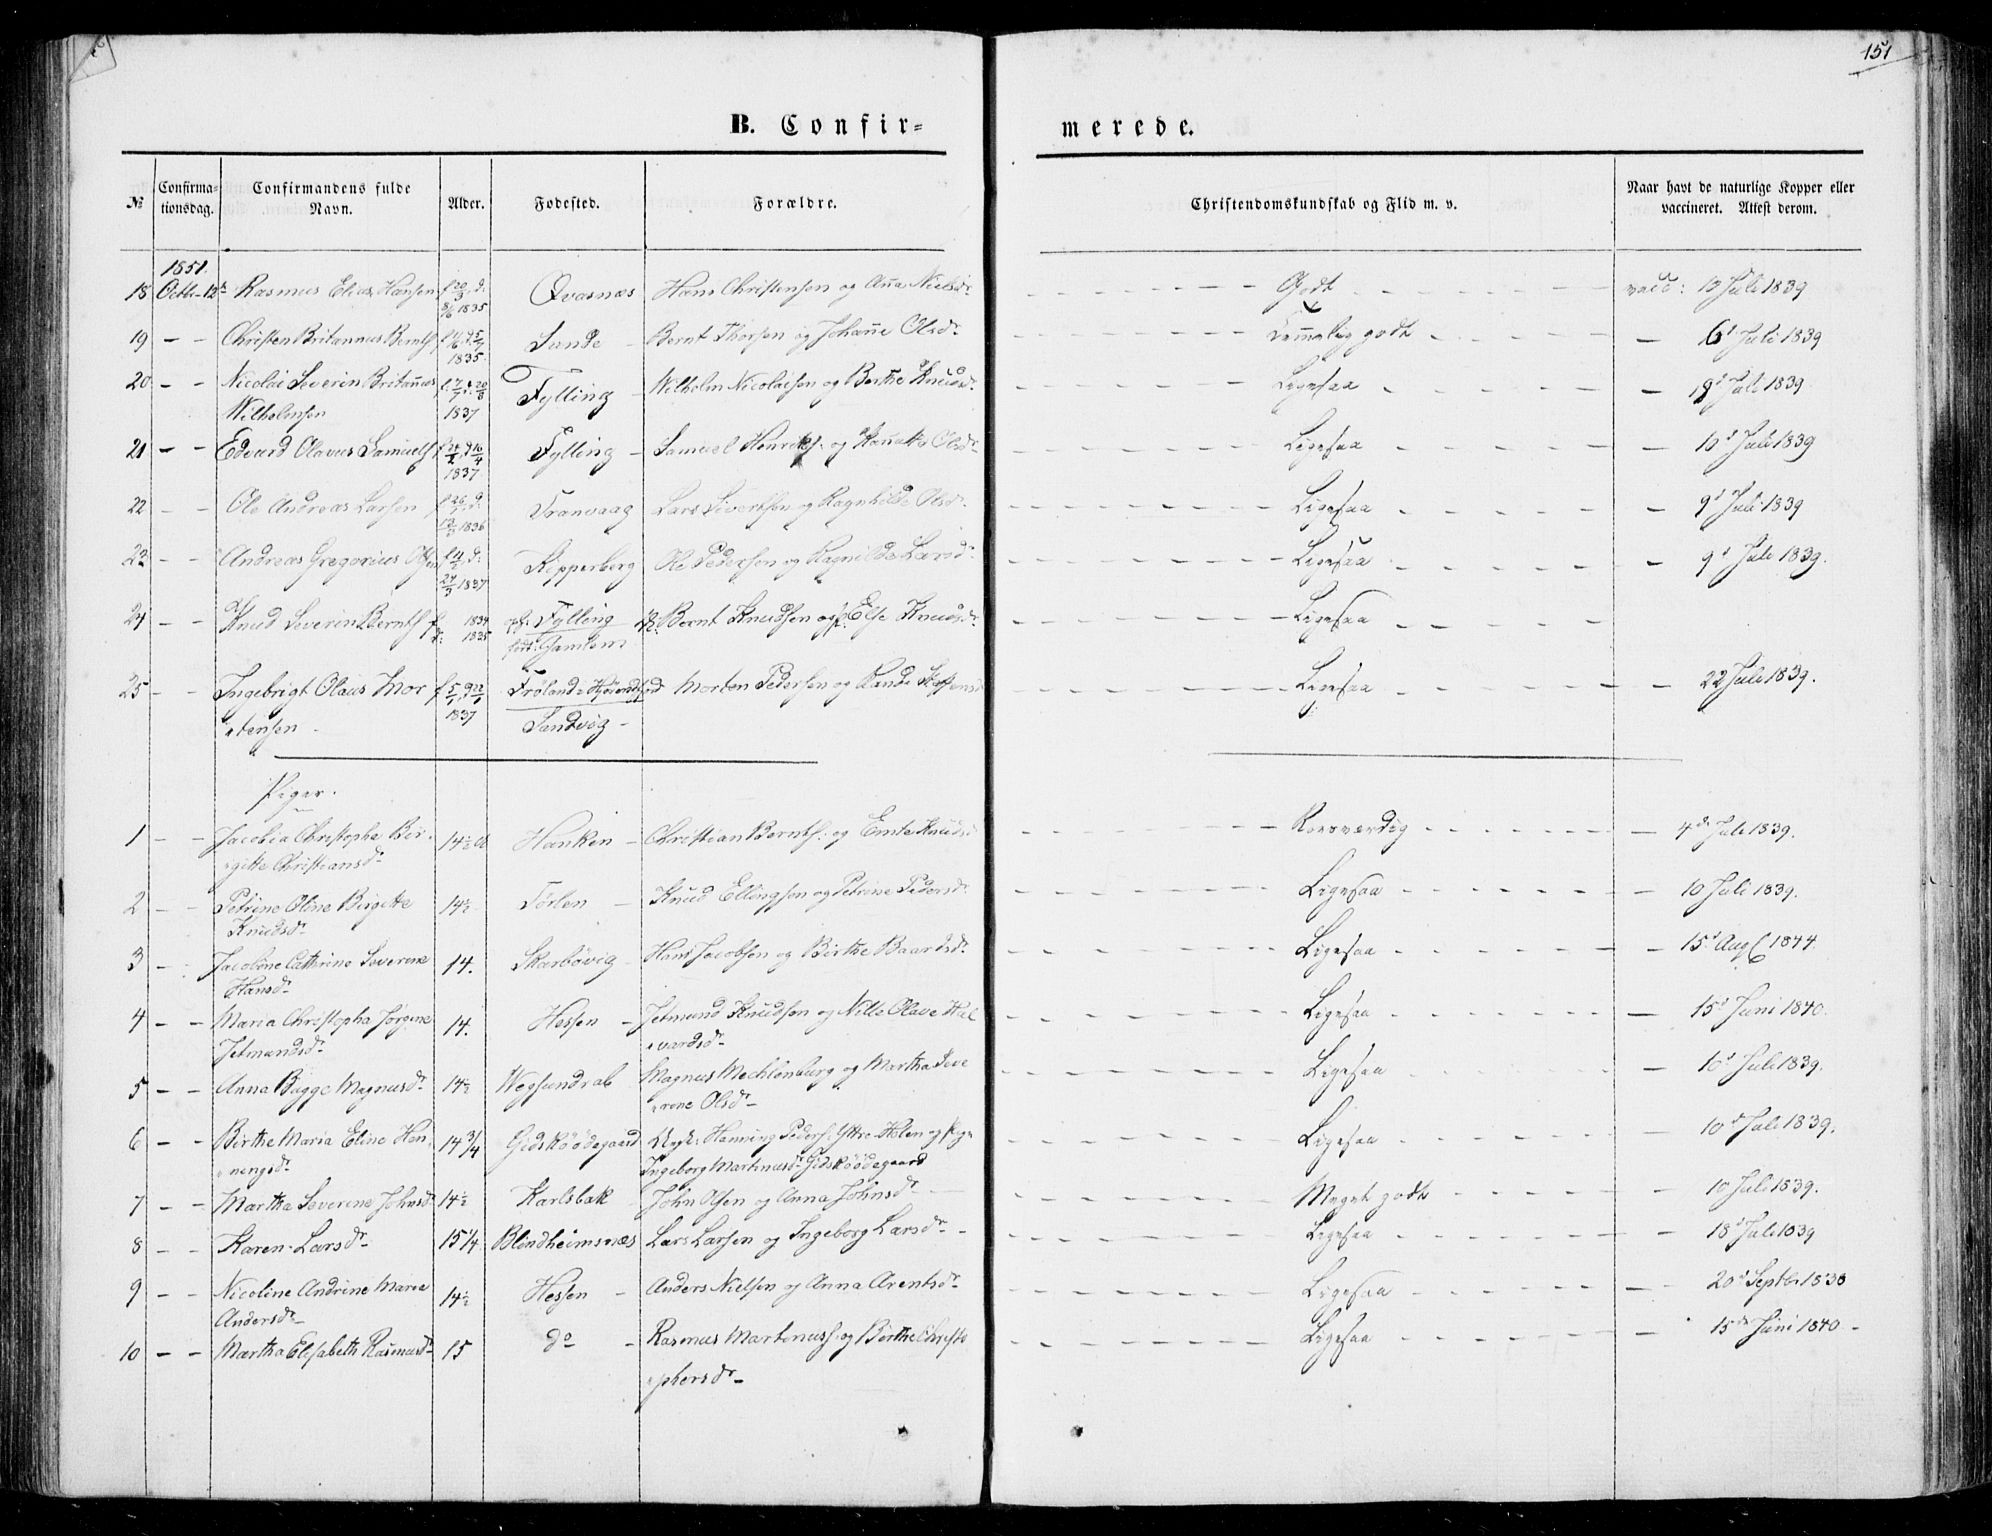 151
B. Confir-
merede.
№
Confirma-
tionsdag.
Confirmandens fulde
Navn.
Alder.
Fødested.
Forældre.
Christendomskundskab og Flid m. v.
Naar havt de naturlige Kopper eller
vaccineret. Attest derom.
1851.
18 Octbr 12te Rasmus Elias Hansen f. 20/3 d. 8/6 1835 Qvasnæs Hans Christensen og Aña Nielsdr. Godt vacc: 10 Juli 1839
19 – – Christen Britannus Berntsf 1835. Sunde Bernt Thorsen og Johañe Olsdr. Temmelig godt – 6d Juli 1839
20 – – Nicolai Severin Britañus
Wilhelmsen 1837 Fylling – Wilhelm Nicolaisen og Berthe Knudsdr. Ligesaa – 19d Juli 1839
21 – – Edvard Olavus Samuelsf 1837 Fylling – Samuel Henriks: og Olsdr. Ligesaa – 10d Juli 1839
22 – – Ole Andreas Larsen f. 26 d. 1836 Tranvaag Lars Sivertsen og Ragnhilde Olsdr. Ligesaa – 9d Juli 1839
23 – – Andreas Gregorius Olsen 1837 Kipperberg Ole Pedersen og Ragnilde Larsdr. Ligesaa – 9d Juli 1839.
24 – – Knud Severin Berntsf f. 1834 d. 1835 opf: Fylling
født: Gamlem Bernt Knudsen og Else Knudsdr. Ligesaa
25 – – Ingebrigt Olaus Mor
tensen 1837 Frøland i
Sandvig – Morten Pedersen og Rande Ligesaa – 22 Juli 1839.
Piger.
1 – – Jacobia Christopha Bir-
gitte Christiansdr. 14½ Hanken – Christian Berntsf: og Emte Knudsd Roesværdig – 4de Juli 1839.
2 – – Petrine Oline Birgitte
Knudsdr. 14½ Tørlen – Knud Ellingsen og Petrine Pedersdr. Ligesaa – 10 Juli 1839.
3 – – Jacobine Cathrine Severine
Hansdr. 14. Skarbövig – Hans Jacobsen og Birthe Baardsdr. Ligesaa – 15d Aug 1844.
4 – – Maria Christopha Jörgine
Jetmundsdr. 14. Hessen – Jetmund Knudsen og Nille Olave Hal
vardsdr. Ligesaa – 15d Juni 1840.
5 – – Anna Bugge Magnusdr. 14½ Wegsundral Magnus Mechlenburg og Martha Seve
rine Olsdr. Ligesaa – 10d Juli 1839.
6 – – Birthe Maria Eline Hen-
ningsdr. 14¾ Gidskøödegaard Henning Peders: Yttre Holen og Pige
Ingeborg Martinusdr. Gidskøödegaard Ligesaa – 10d Juli 1839.
7 – – Martha Severine Johnsd. 14½ Karlsbak – John Olsen og Anna Johnsdr. Meget godt – 10 Juli 1839.
8 – – Karen Larsdr. 15¼ Blindheimsnæs Lars Larsen og Ingeborg Larsdr. – Ligesaa – 18d Juli 1839
9 – – Nicoline Andrine Marie
Andersdr. 14½ Hessen – Anders Nielsen og Anna Arentsdr. Ligesaa – 20d Septbr 1838
10 – – Martha Elisabeth Rasmusdr. 15 do – Rasmus Martinusf. og Birthe Christo
phersdr. Ligesaa – 15de Juni 1840.